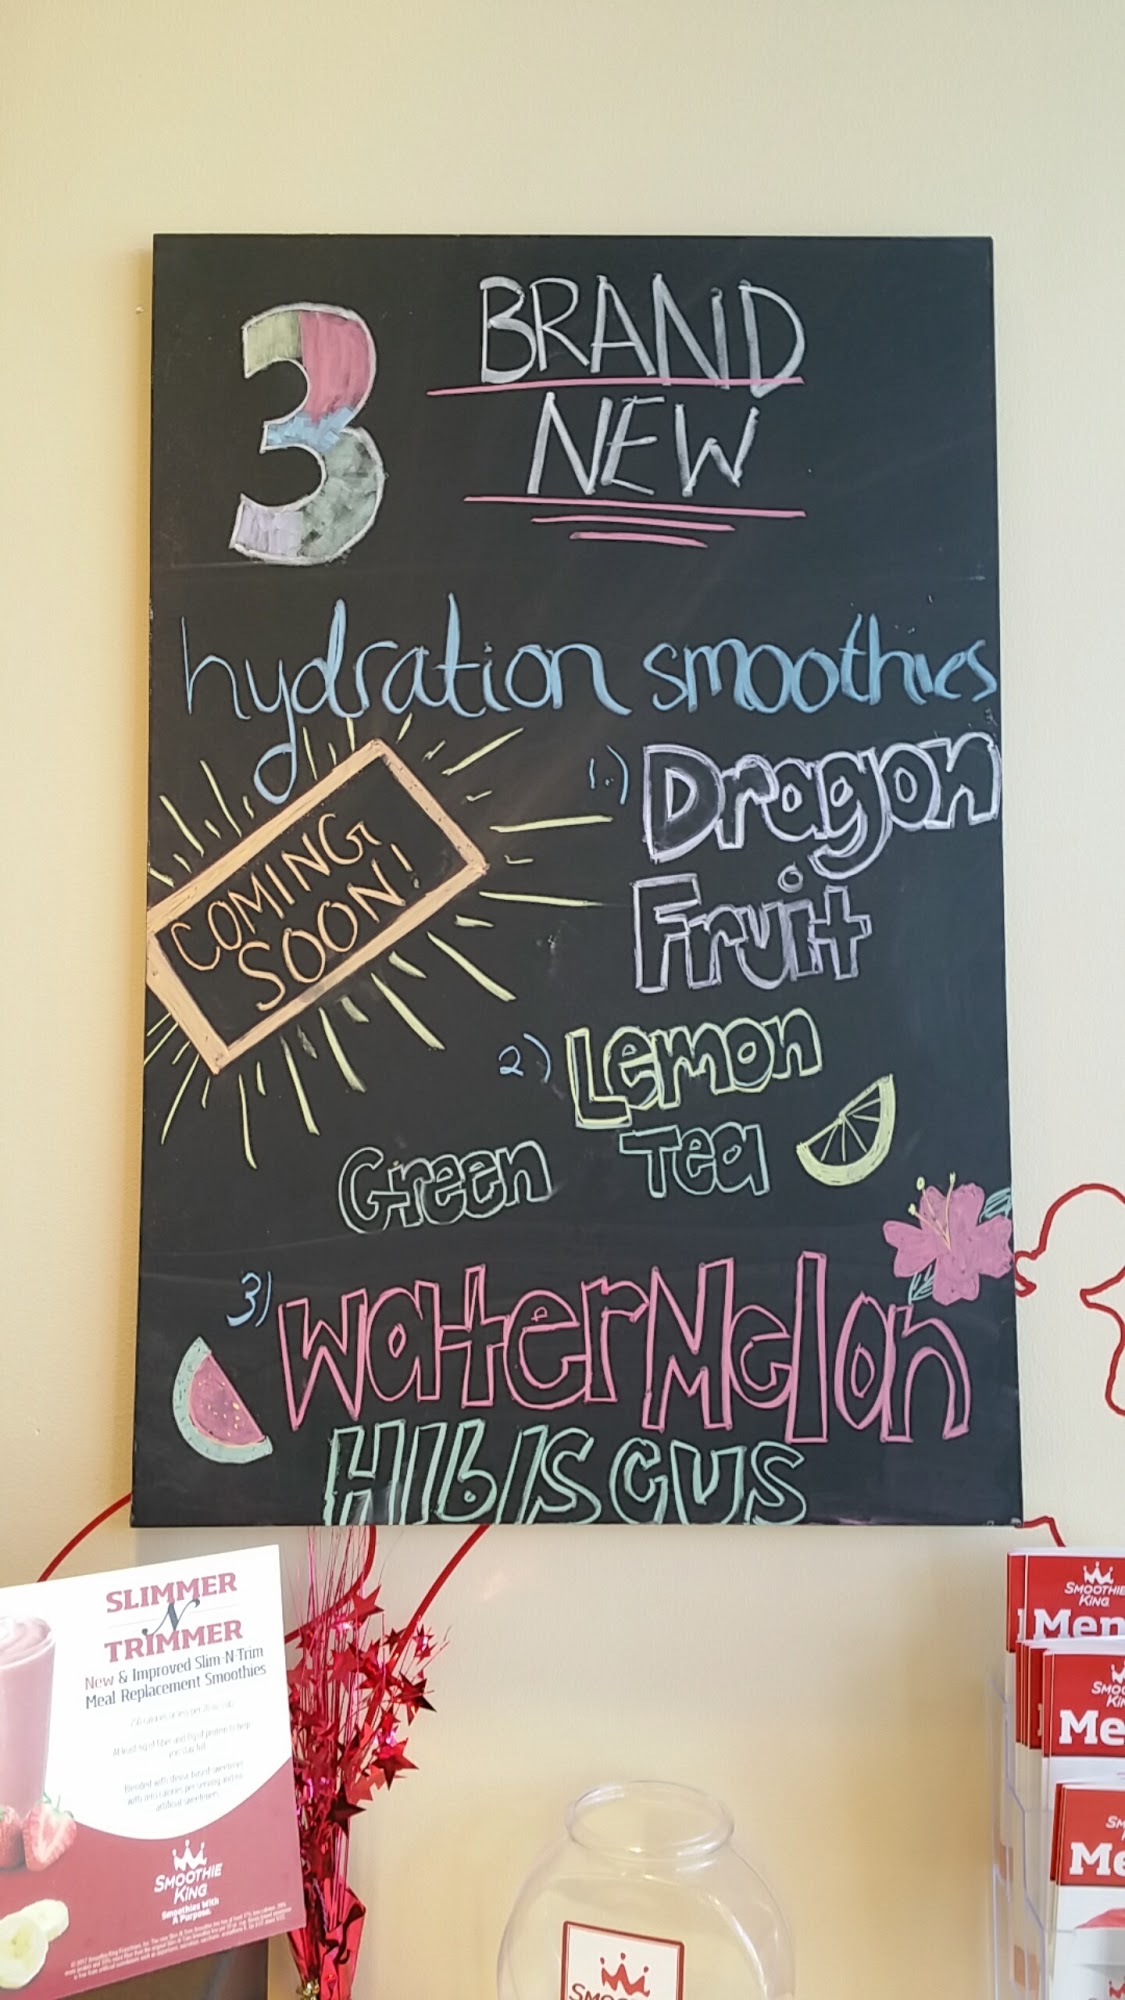 3 BRAND
NEW
hydration smoothies
COMING
SOON!
1.) Dragon
Fruit
2) Lemon
Green Tea
3) WaterMelon
HIbIScus
SLIMMER
N
TRIMMER
New & Improved Slim-N-Trim
Meal Replacement Smoothies
SMOOTHIE
KING
Smoothies With
A Purpose.
SMOOTHIE
KING
Men
Me
Me